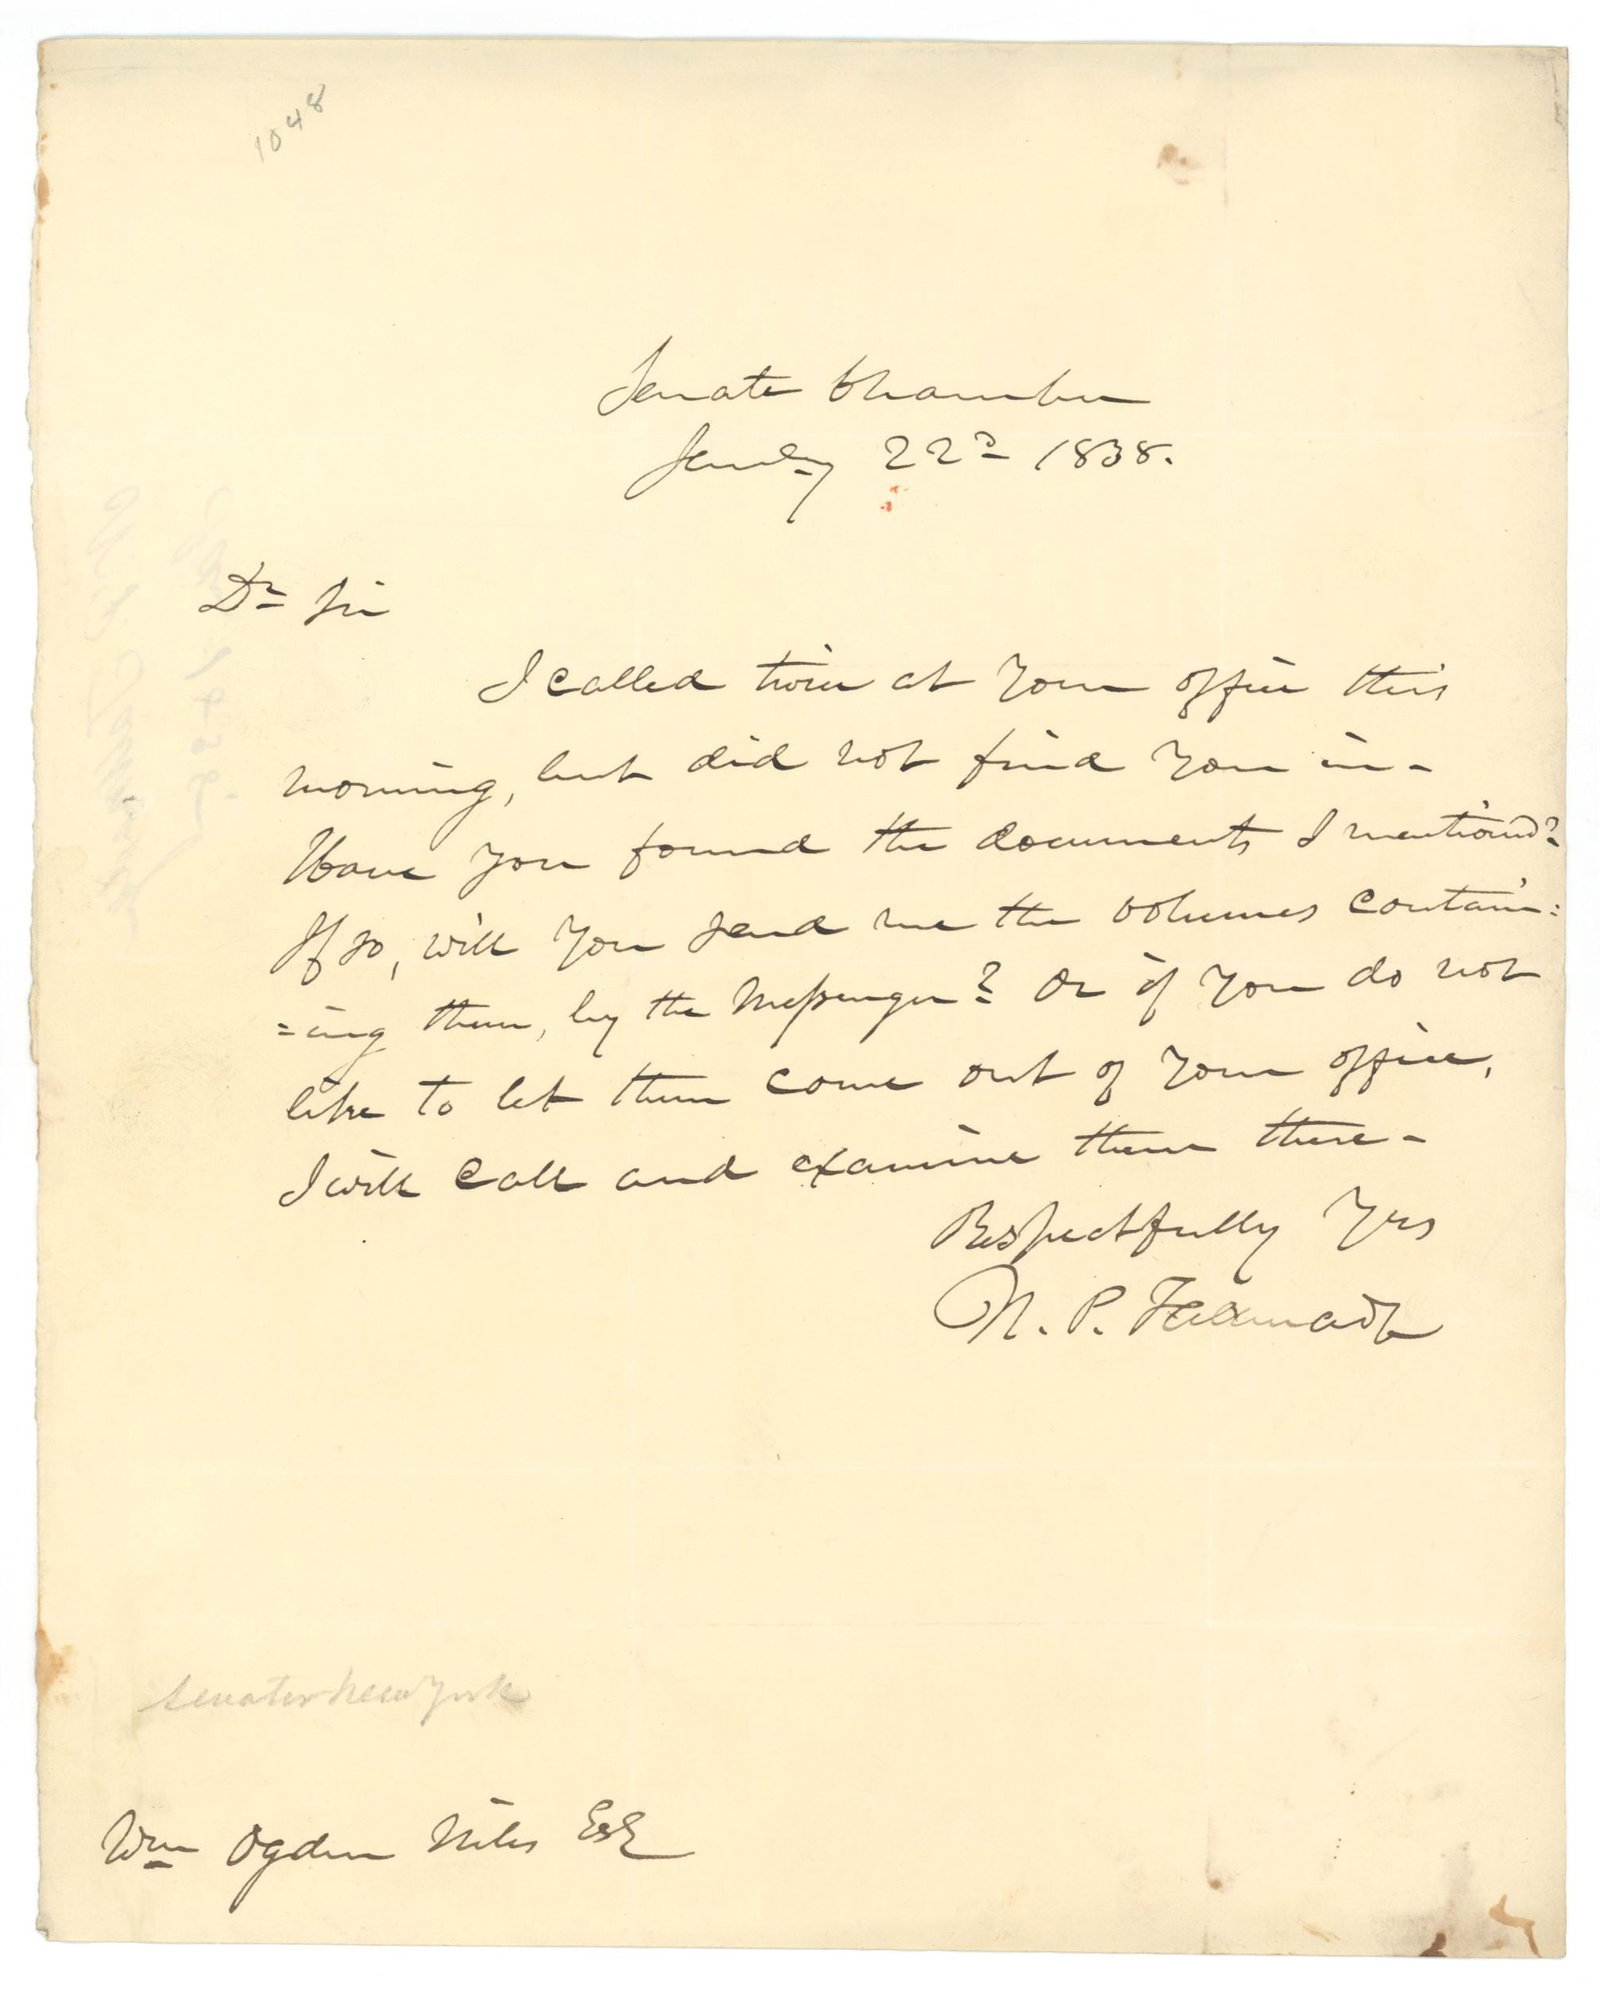 1048
Senate Chamber
Jany 22d 1838.
Dr Sir
I called twice at your office this
morning, but did not find you in-
Have you found the documents I mentioned?
If so, will you send me the volumes contain=
=ing them, by the Messenger? Or if you do not
like to let them come out of your office,
I will call and examine them there-
Respectfully Yrs
N. P. Tallmadge
Senator New York
Wm Ogden Niles Esq